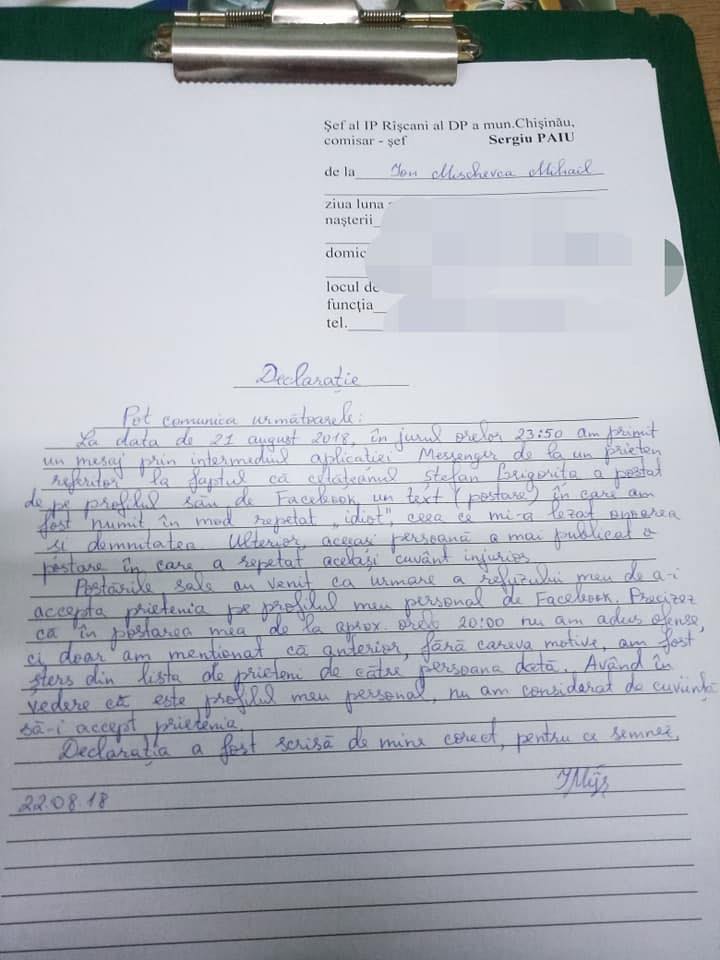 Șef al IP Rîșcani al DP a mun.Chișinău,
comisar - șef Sergiu PAIU
de la Ion Mischevca Mihail
ziua luna
nașterii
domic
locul de
funcția
tel.
Declarație
Pot comunica următoarele:
La data de 21 august 2018, în jurul orelor 23:50 am primit
un mesaj prin intermediul aplicației Messenger de la un prieten
referitor la faptul că cetățeanul Ștefan Grigorița a postat
de pe profilul său de Facebook un text (postare) în care am
fost numit în mod repetat „idiot", ceea ce mi-a lezat onoarea
și demnitatea. Ulterior, aceeași persoană a mai publicat o
postare în care a repetat același cuvânt injurios.
Postările sale au venit ca urmare a refuzului meu de a-i
accepta prietenia pe profilul meu personal de Facebook. Precizez
că în postarea mea de la aprox. orele 20:00 nu am adus ofense,
ci doar am menționat că anterior, fără careva motive, am fost
șters din lista de prieteni de către persoana dată. Având în
vedere că este profilul meu personal, nu am considerat de cuviință
să-i accept prietenia
Declarația a fost scrisă de mine corect, pentru ce semnez,
22.08.18